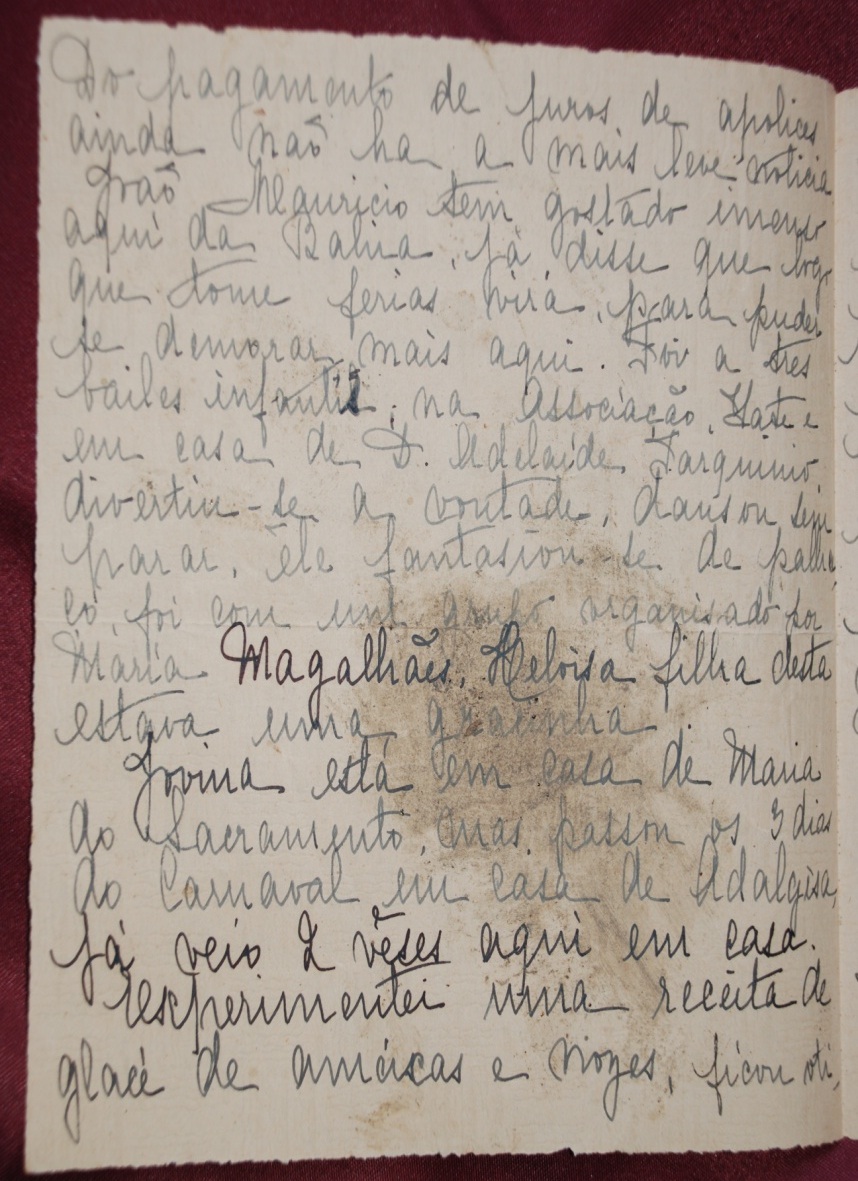 Do pagamento de juros de apolices
ainda naõ ha a mais leve noticia
Joaõ Mauricio tem gostado imenso
aqui da Bahia, já disse que logo
que tome ferias virá, para puder
se demorar mais aqui. Foi a tres
bailes infantis, na Associação, Yate e
em casa de D. Adelaide Tarquinio,
divertiu-se a vontade, dansou sem
parar, êle fantasiou-se de palha
ço, foi com um grupo organisado por
Maria Magalhães, Heloisa filha desta
estava uma gracinha.
Jovina está em casa de Maria
do Sacramento, mas passou os 3 dias
do Carnaval em casa de Adalgisa,
já veio 2 vêses aqui em casa.
Experimentei uma receita de
glacé de ameixas e nozes, ficou oti,